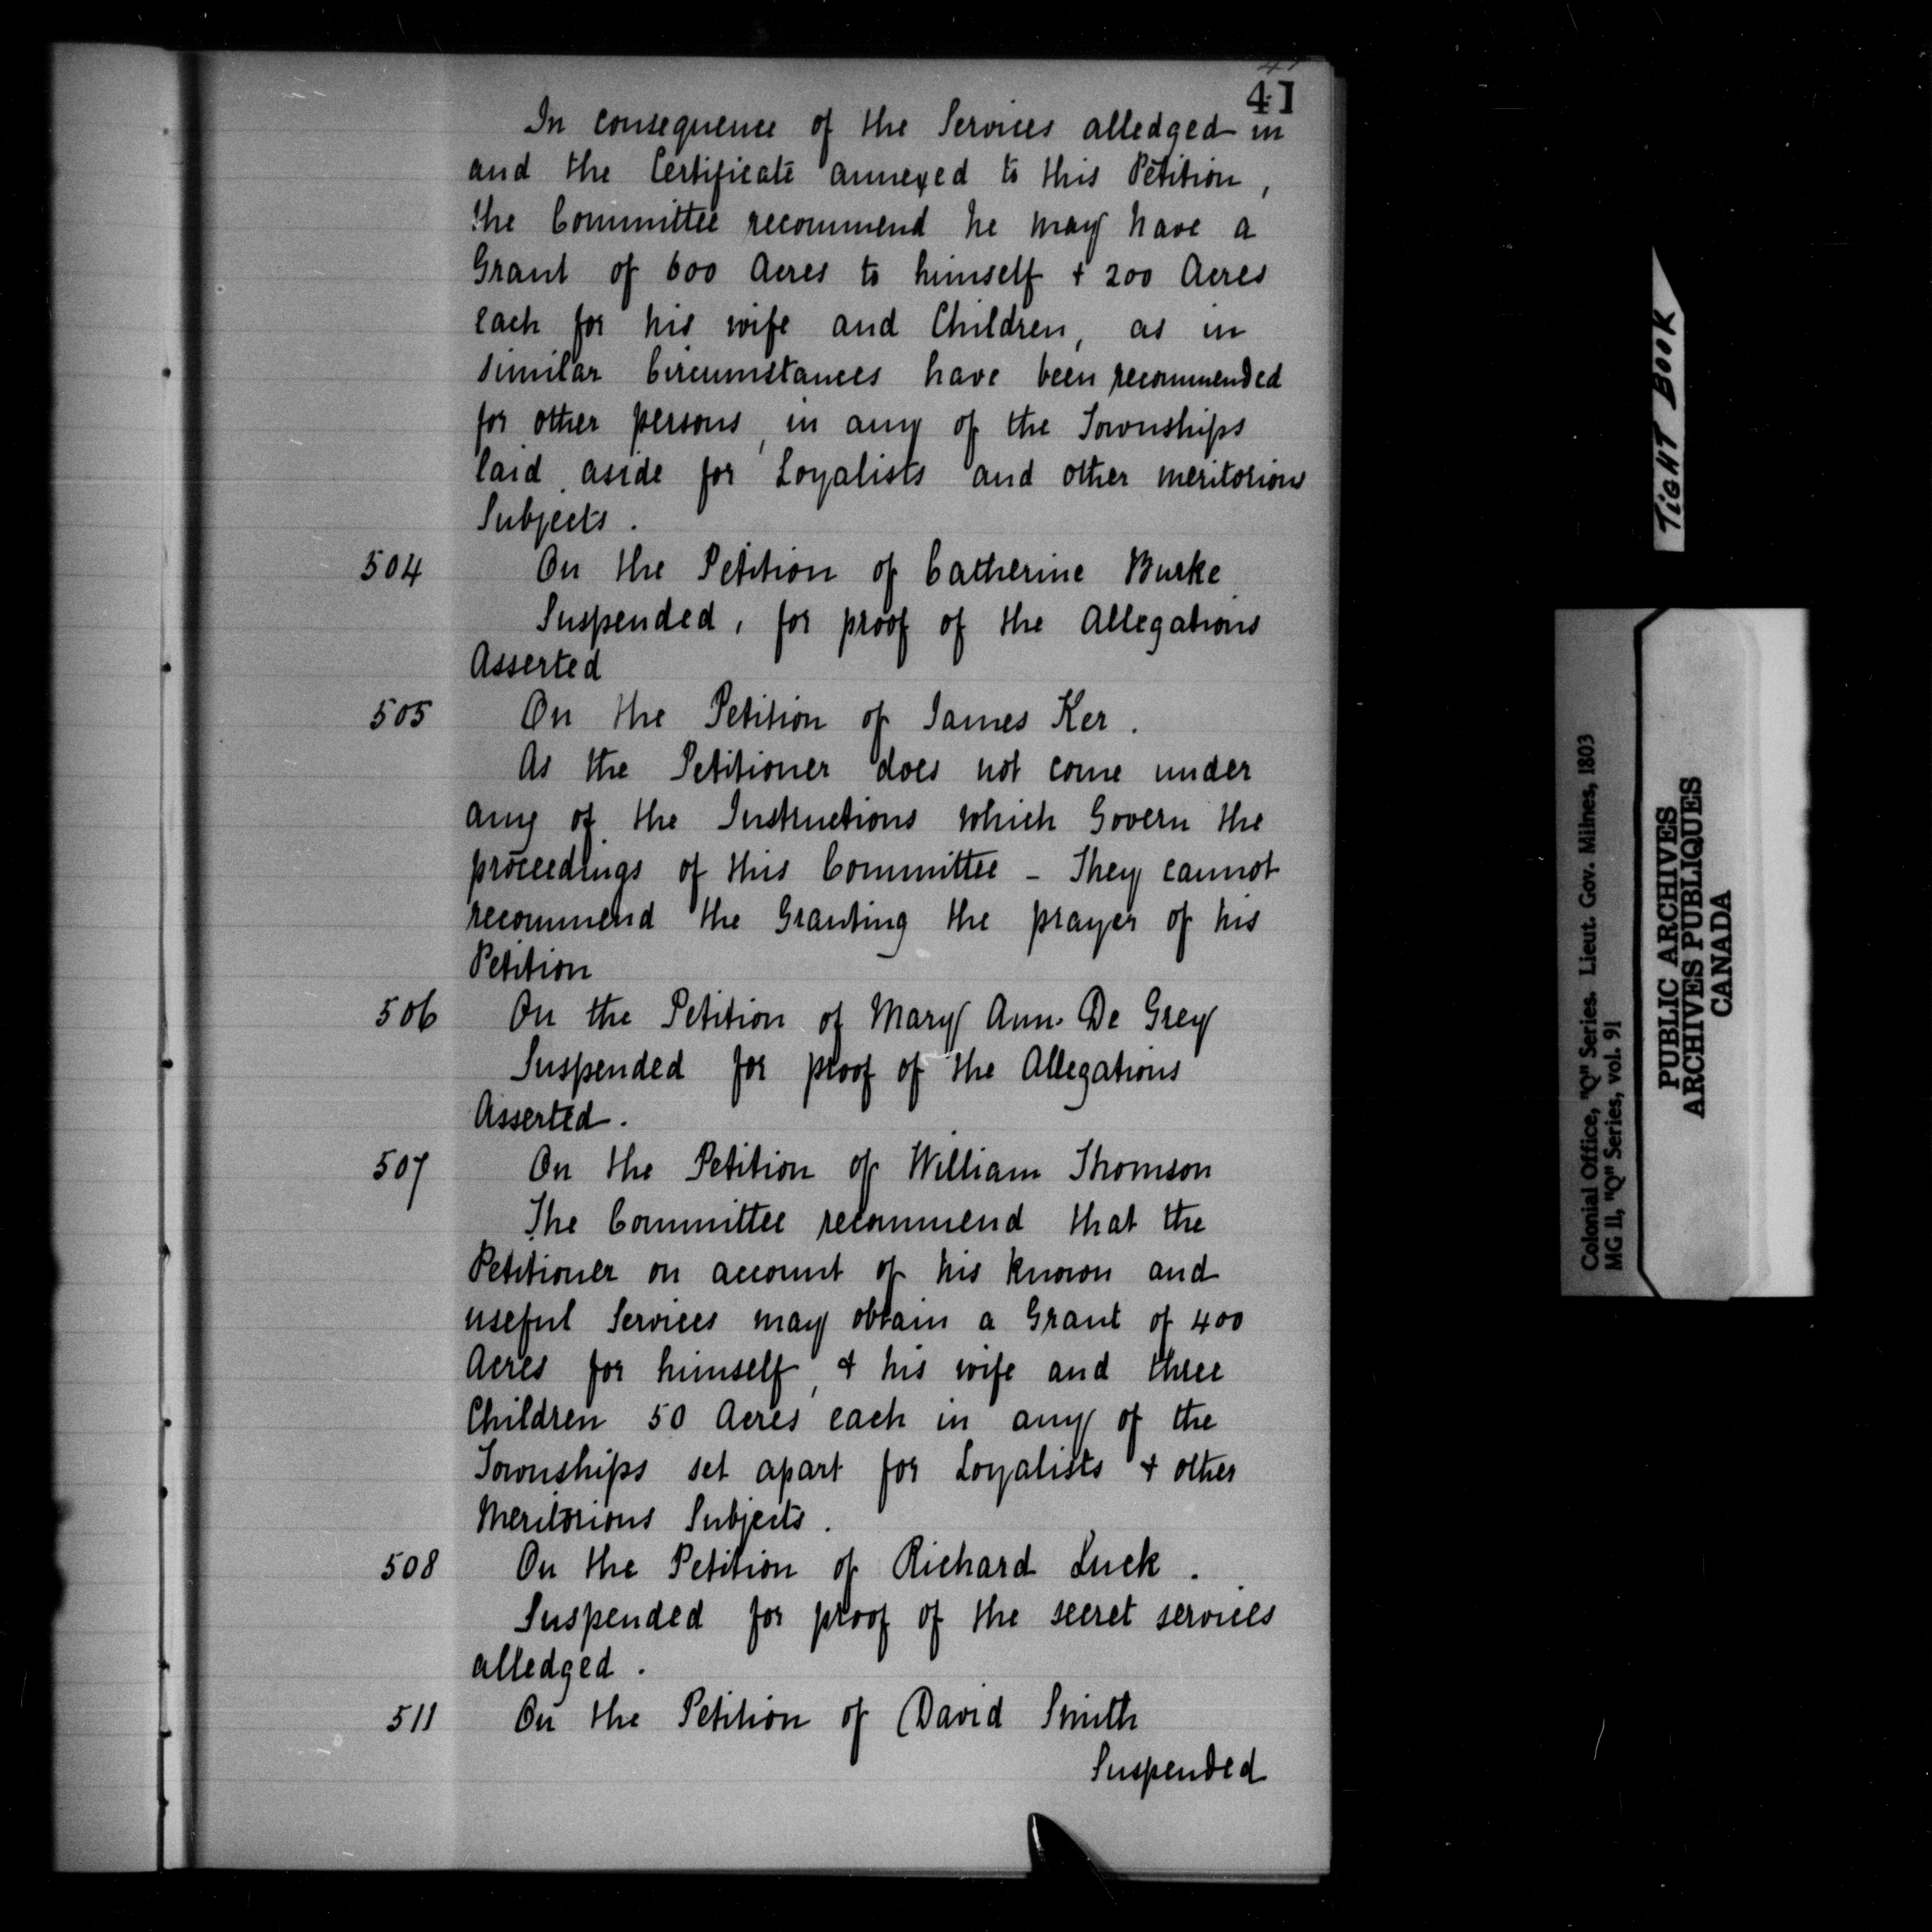 41
In consequence of the Services alledged in
and the Certificate annexed to this Petition,
the Committee recommend he may have a
Grant of 600 Acres to himself + 200 Acres
each for his wife and Children, as in
similar Circumstances have been recommended
for other persons, in any of the Townships
laid aside for Loyalists and other meritorious
Subjects.
504 On the Petition of Catherine Burke
Suspended, for proof of the Allegations
Asserted
505 On the Petition of James Ker.
As the Petitioner does not come under
any of the Instructions which Govern the
proceedings of this Committee - They cannot
recommend the Granting the prayer of his
Petition
506 On the Petition of Mary Ann De Grey
Suspended for proof of the Allegations
Asserted.
507 On the Petition of William Thomson
The Committee recommend that the
Petitioner on account of his known and
useful Services may obtain a Grant of 400
Acres for himself, & his wife and three
Children 50 Acres each in any of the
Townships set apart for Loyalists + other
Meritorious Subjects.
508 On the Petition of Richard Luck.
Suspended for proof of the secret services
alledged.
511 On the Petition of David Smith
Suspended
TIGHT BOOK
Colonial Office, "Q" Series. Lieut. Gov. Milnes, 1803
MG 11, "Q" Series, vol. 91
PUBLIC ARCHIVES
ARCHIVES PUBLIQUES
CANADA